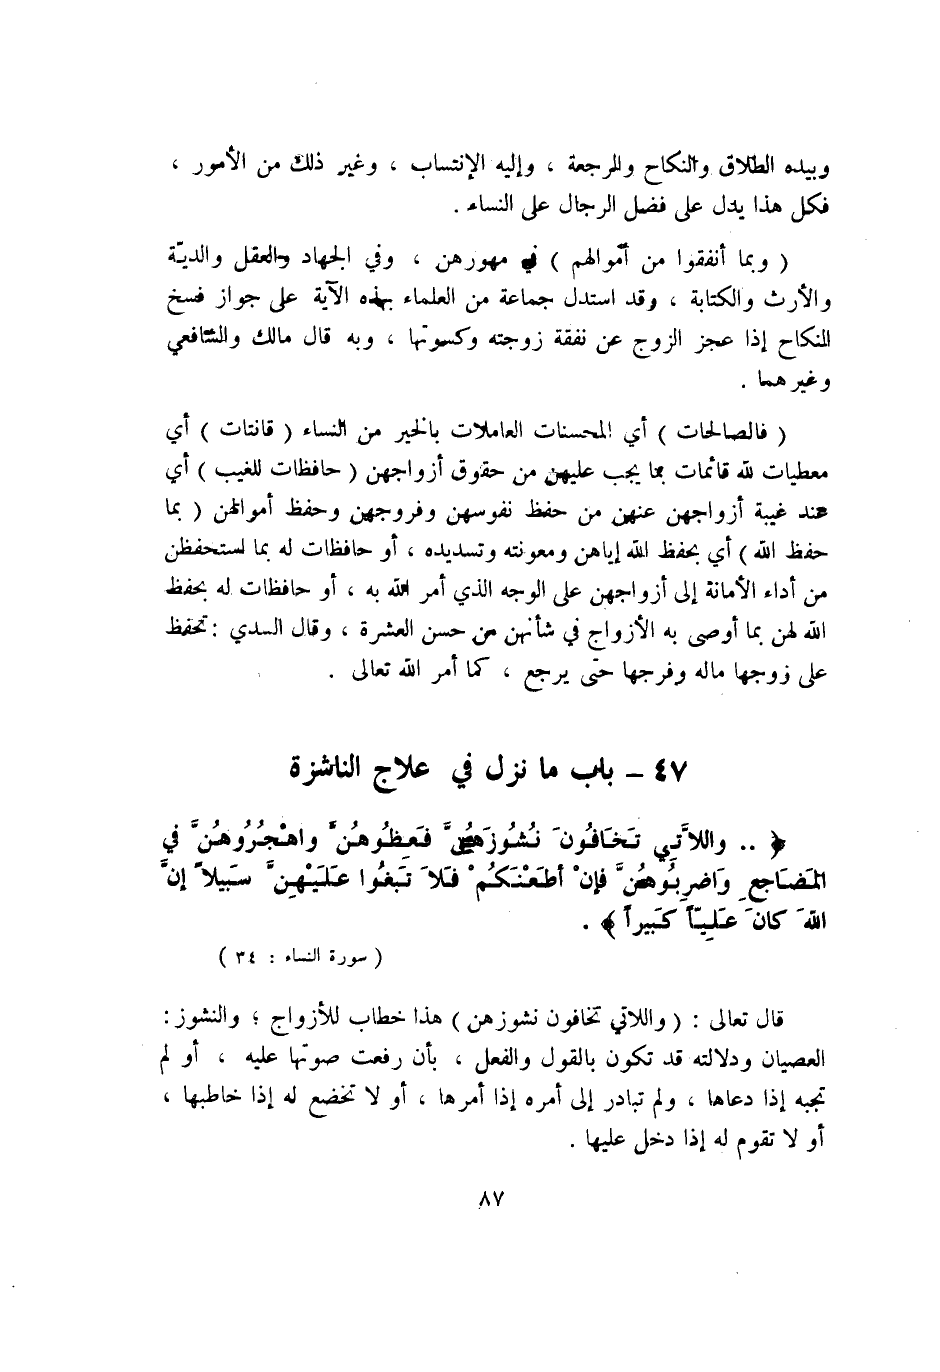 وبيده الطلاق والنكاح والرجعة ، وإليه الإنتساب ، وغير ذلك من الأمور ،
فكل هذا يدل على فضل الرجال على النساء .
( وبما أنفقوا من أموالهم ) في مهورهن ، وفي الجهاد والعقل والديّة
والأرث والكتابة ، وقد استدل جماعة من العلماء بهذه الآية على جواز فسخ
النكاح إذا عجز الزوج عن نفقة زوجته وكسوتها ، وبه قال مالك والشافعي
وغيرهما .
( فالصالحات ) أي المحسنات العاملات بالخير من النساء ( قانتات ) أي
معطيات لله قائمات بما يجب عليهن من حقوق أزواجهن ( حافظات للغيب ) أي
عند غيبة أزواجهن عنهن من حفظ نفوسهن وفروجهن وحفظ أموالهن ( بما
حفظ الله ) أي بحفظ الله إياهن ومعونته وتسديده ، أو حافظات له بما استحفظن
من أداء الأمانة إلى أزواجهن على الوجه الذي أمر الله به ، أو حافظات له بحفظ
الله لهن بما أوصى به الأزواج في شأنهن من حسن العشرة ، وقال السدي : تحفظ
على زوجها ماله وفرجها حتى يرجع ، كما أمر الله تعالى .
٤٧ – باب ما نزل في علاج الناشزة
﴿ .. واللاَّتي تَخَافُونَ نُشُوزَهُنَّ فَعِظُوهُنَّ واهْجُرُوهُنَّ في
المَضَاجِعِ وَاضرِبُوهُنَّ فإنْ أطَعْنَكُمْ فَلاَ تَبغُوا عَلَيْهِنَّ سَبيلاً إنَّ
اللهَ كانَ عَلِيّاً كَبيراً ﴾ .
( سورة النساء : ٣٤ )
قال تعالى : ( واللاتي تخافون نشوزهن ) هذا خطاب للأزواج ؛ والنشوز :
العصيان ودلالته قد تكون بالقول والفعل ، بأن رفعت صوتها عليه ، أو لم
تجبه إذا دعاها ، ولم تبادر إلى أمره إذا أمرها ، أو لا تخضع له إذا خاطبها ،
أو لا تقوم له إذا دخل عليها .
٨٧